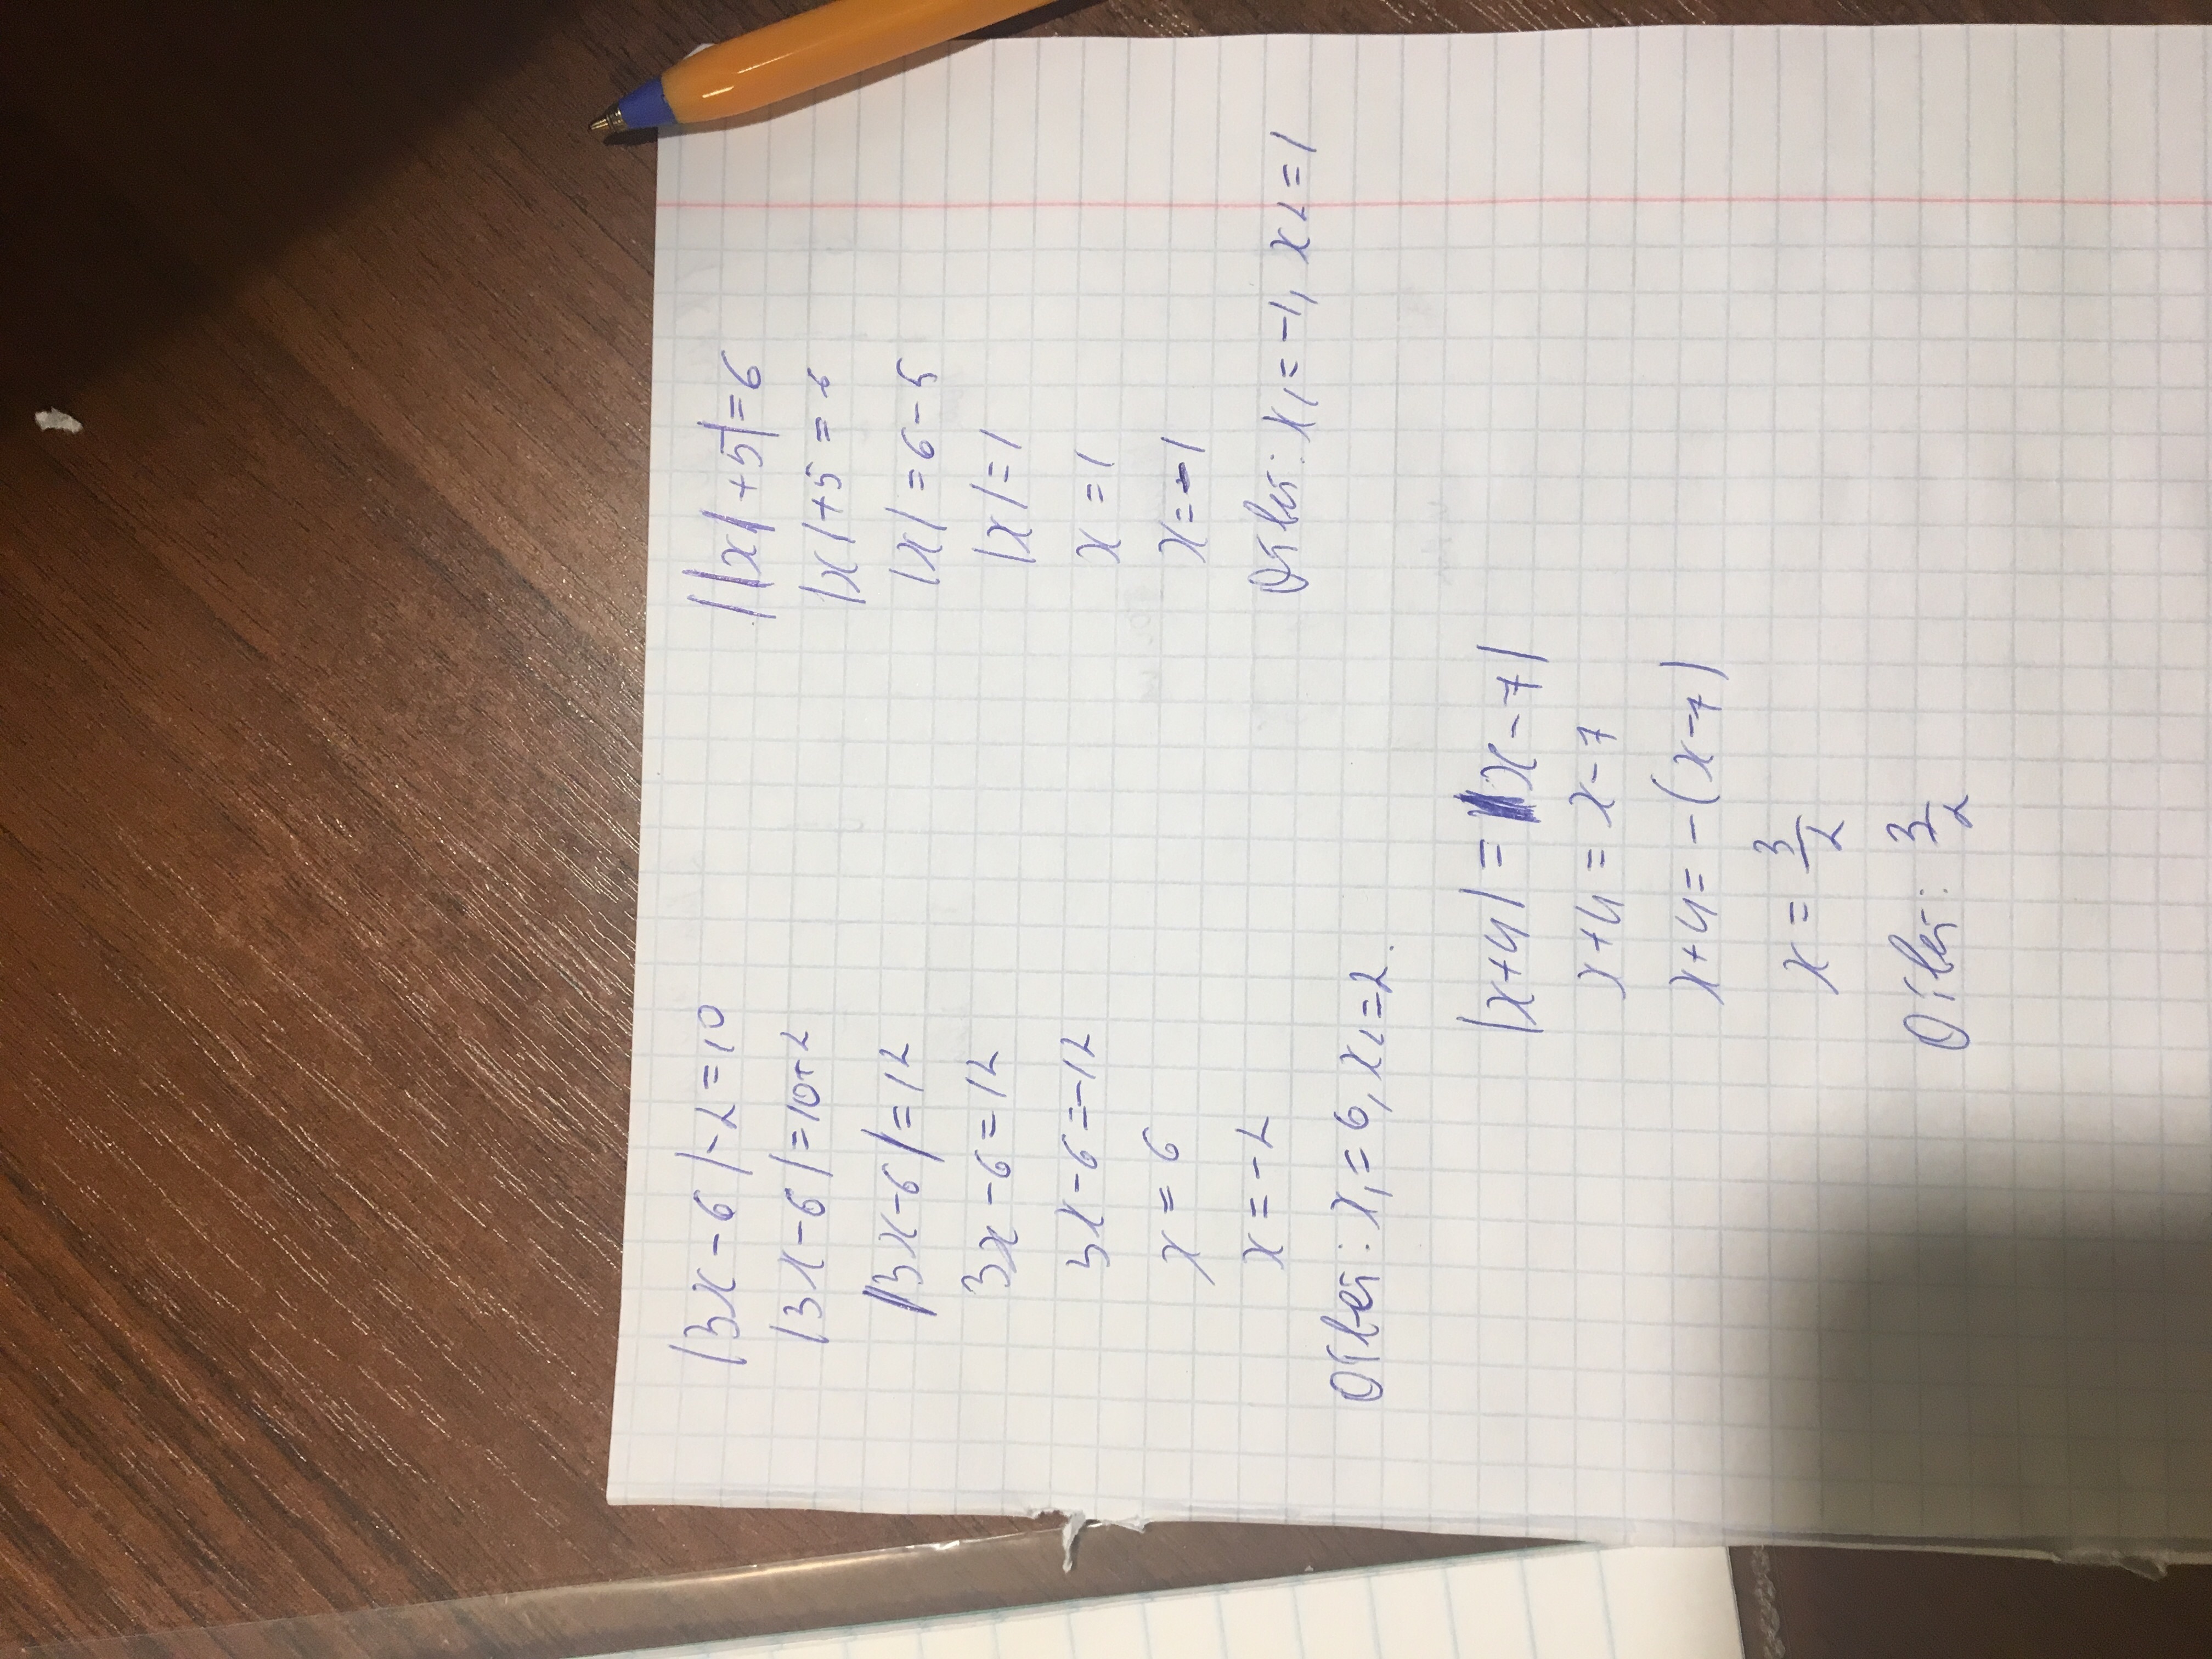 |3x-6|-2=10
|3x-6|=10+2
|3x-6|=12
3x-6=12
3x-6=-12
x=6
x=-2
Ответ: x₁=6, x₂=2.
||x|+5|=6
|x|+5=6
|x|=6-5
|x|=1
x=1
x=-1
Ответ: x₁=-1, x₂=1
|x+4|=|x-7|
x+4=x-7
x+4=-(x-7)
x=3/2
Ответ: 3/2